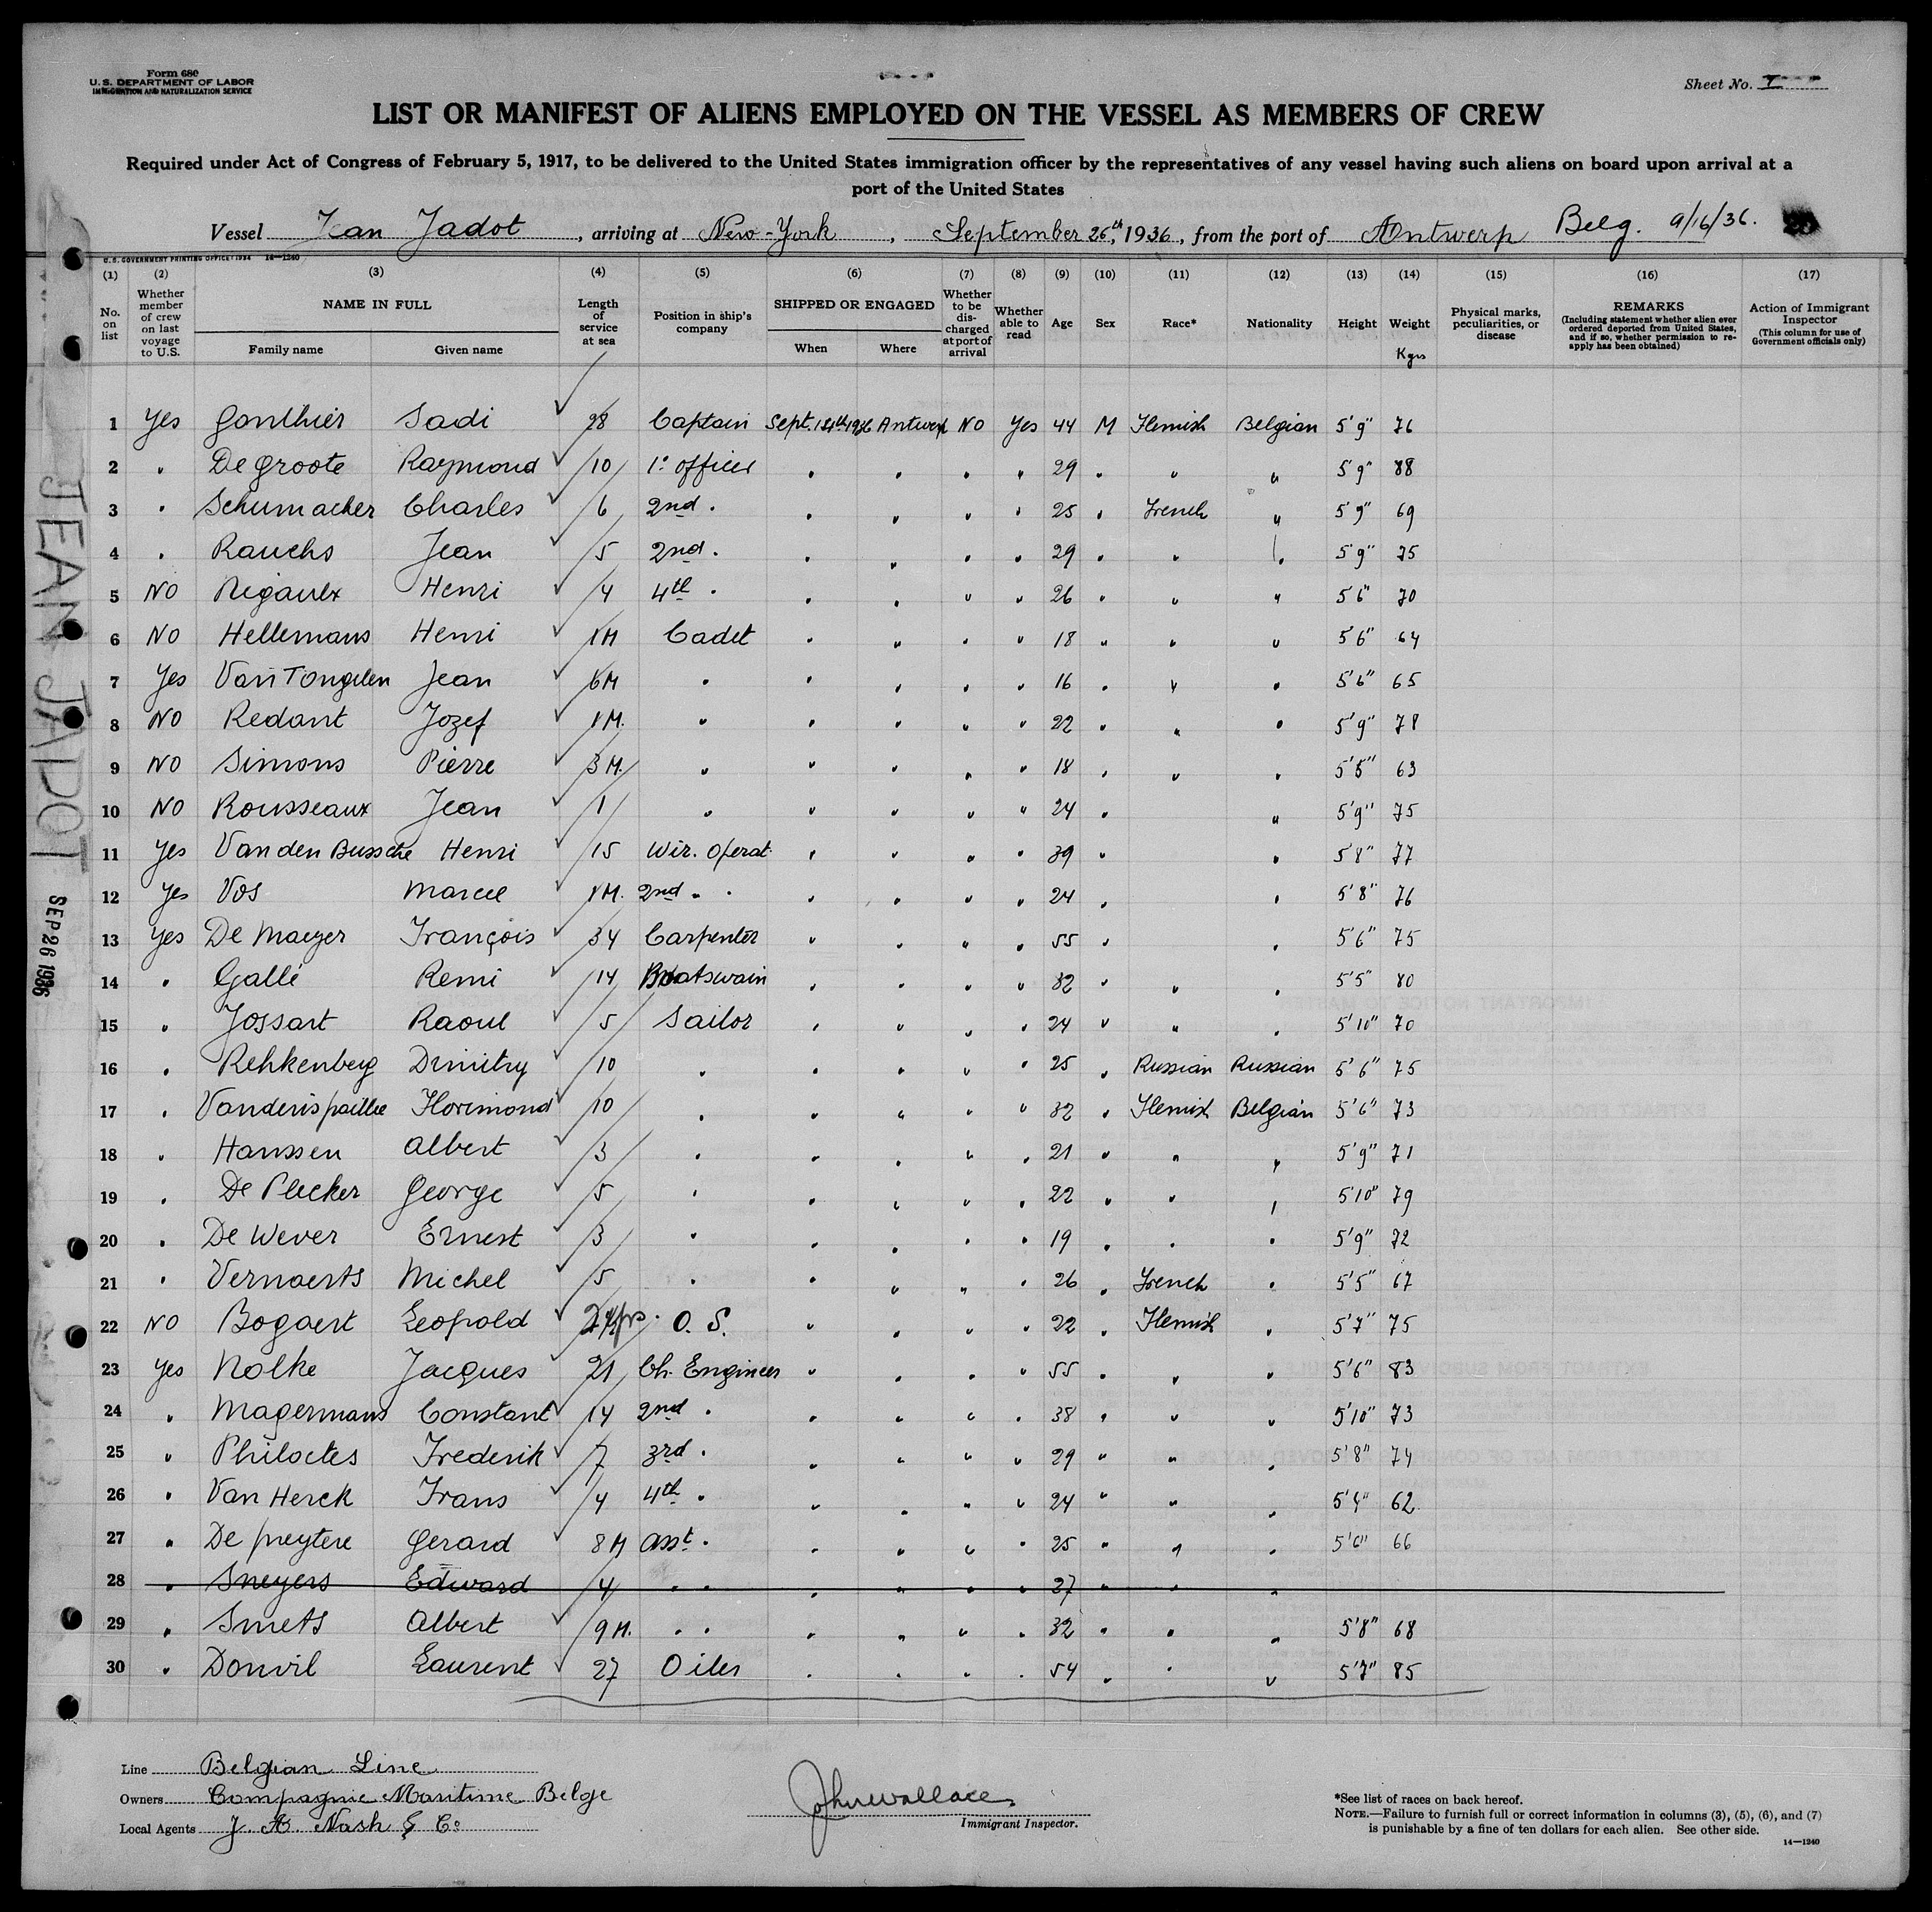 Form 680
U. S. DEPARTMENT OF LABOR
IMMIGRATION AND NATURALIZATION SERVICE
Sheet No. I
LIST OR MANIFEST OF ALIENS EMPLOYED ON THE VESSEL AS MEMBERS OF CREW
Required under Act of Congress of February 5, 1917, to be delivered to the United States immigration officer by the representatives of any vessel having such aliens on board upon arrival at a
port of the United States
Vessel Jean Jadot , arriving at New-York , September 26th, 1936, from the port of Antwerp Belg. 9/16/36.
U. S. GOVERNMENT PRINTING OFFICE: 1934 14-1240
(1) (2) (3) (4) (5) (6) (7) (8) (9) (10) (11) (12) (13) (14) (15) (16) (17)
No. on list
Whether member of crew on last voyage to U.S.
NAME IN FULL
Family name Given name
Length of service at sea
Position in ship's company
SHIPPED OR ENGAGED
When Where
Whether to be discharged at port of arrival
Whether able to read
Age
Sex
Race*
Nationality
Height
Weight
Kgrs
Physical marks, peculiarities, or disease
REMARKS
(Including statement whether alien ever ordered deported from United States, and if so, whether permission to reapply has been obtained)
Action of Immigrant Inspector
(This column for use of Government officials only)
1 Yes Gonthier Sadi 28 Captain Sept. 1936 Antwerp NO Yes 44 M Flemish Belgian 5'9" 76
2 " De Groote Raymond 10 1° officer " " " " 29 " " " 5'9" 88
3 " Schumacher Charles 6 2nd " " " " " 25 " French " 5'9" 69
4 " Rauchs Jean 5 2nd " " " " " 29 " " " 5'9" 75
5 NO Rigaulx Henri 4 4th " " " " " 26 " " " 5'6" 70
6 NO Hellemans Henri 1M Cadet " " " " 18 " " " 5'6" 64
7 Yes Van Tongelen Jean 6M " " " " " 16 " " " 5'6" 65
8 NO Redant Jozef 1M. " " " " " 22 " " " 5'9" 78
9 NO Simons Pierre 3M. " " " " " 18 " " " 63
10 NO Rousseaux Jean 1 " " " " " 24 " " 5'9" 75
11 Yes Van den Bussche Henri 15 Wir. Operat. " " " " 39 " " 5'8" 77
12 Yes Vos Marcel 1M. 2nd " " " " " " 24 " " 5'8" 76
13 Yes De Maeyer François 34 Carpenter " " " " 55 " " 5'6" 75
14 " Gallé Remi 14 Boatswain " " " " 32 " " " 5'5" 80
15 " Jossart Raoul 5 Sailor " " " " 24 " " " 5'10" 70
16 " Rehkenberg Dimitry 10 " " " " " 25 " Russian Russian 5'6" 75
17 " Vanderispaillie Florimond 10 " " " " " 32 " Flemish Belgian 5'6" 73
18 " Hanssen Albert 3 " " " " " 21 " " " 5'9" 71
19 " De Plecker George 5 " " " " " 22 " " " 5'10" 79
20 " De Wever Ernest 3 " " " " " 19 " " " 5'9" 72
21 " Vernaerts Michel 5 " " " " " 26 " French " 5'5" 67
22 NO Bogaert Leopold O. S. " " " " 22 " Flemish " 5'7" 75
23 Yes Nolke Jacques 21 Ch. Engineer " " " " 55 " " " 5'6" 83
24 " Magermans Constant 14 2nd " " " " " 38 " " " 5'10" 73
25 " Philoctes Frederik 7 3rd " " " " " 29 " " " 5'8" 74
26 " Van Herck Frans 4 4th " " " " " 24 " " " 5'4" 62
27 " De preytere Gerard 8M asst. " " " " " 25 " " " 5'6" 66
28 " Sneyers Edward 4 " " " " " " 27 " " "
29 " Smets Albert 9M. " " " " " " 32 " " " 5'8" 68
30 " Donvil Laurent 27 Oiler " " " " 54 " " " 5'7" 85
JEAN JADOT
SEP 26 1936
Line Belgian Line
Owners Compagnie Maritime Belge
Local Agents J. A. Nash & Co
John Wallace
Immigrant Inspector.
*See list of races on back hereof.
NOTE.—Failure to furnish full or correct information in columns (3), (5), (6), and (7)
is punishable by a fine of ten dollars for each alien. See other side.
14—1240